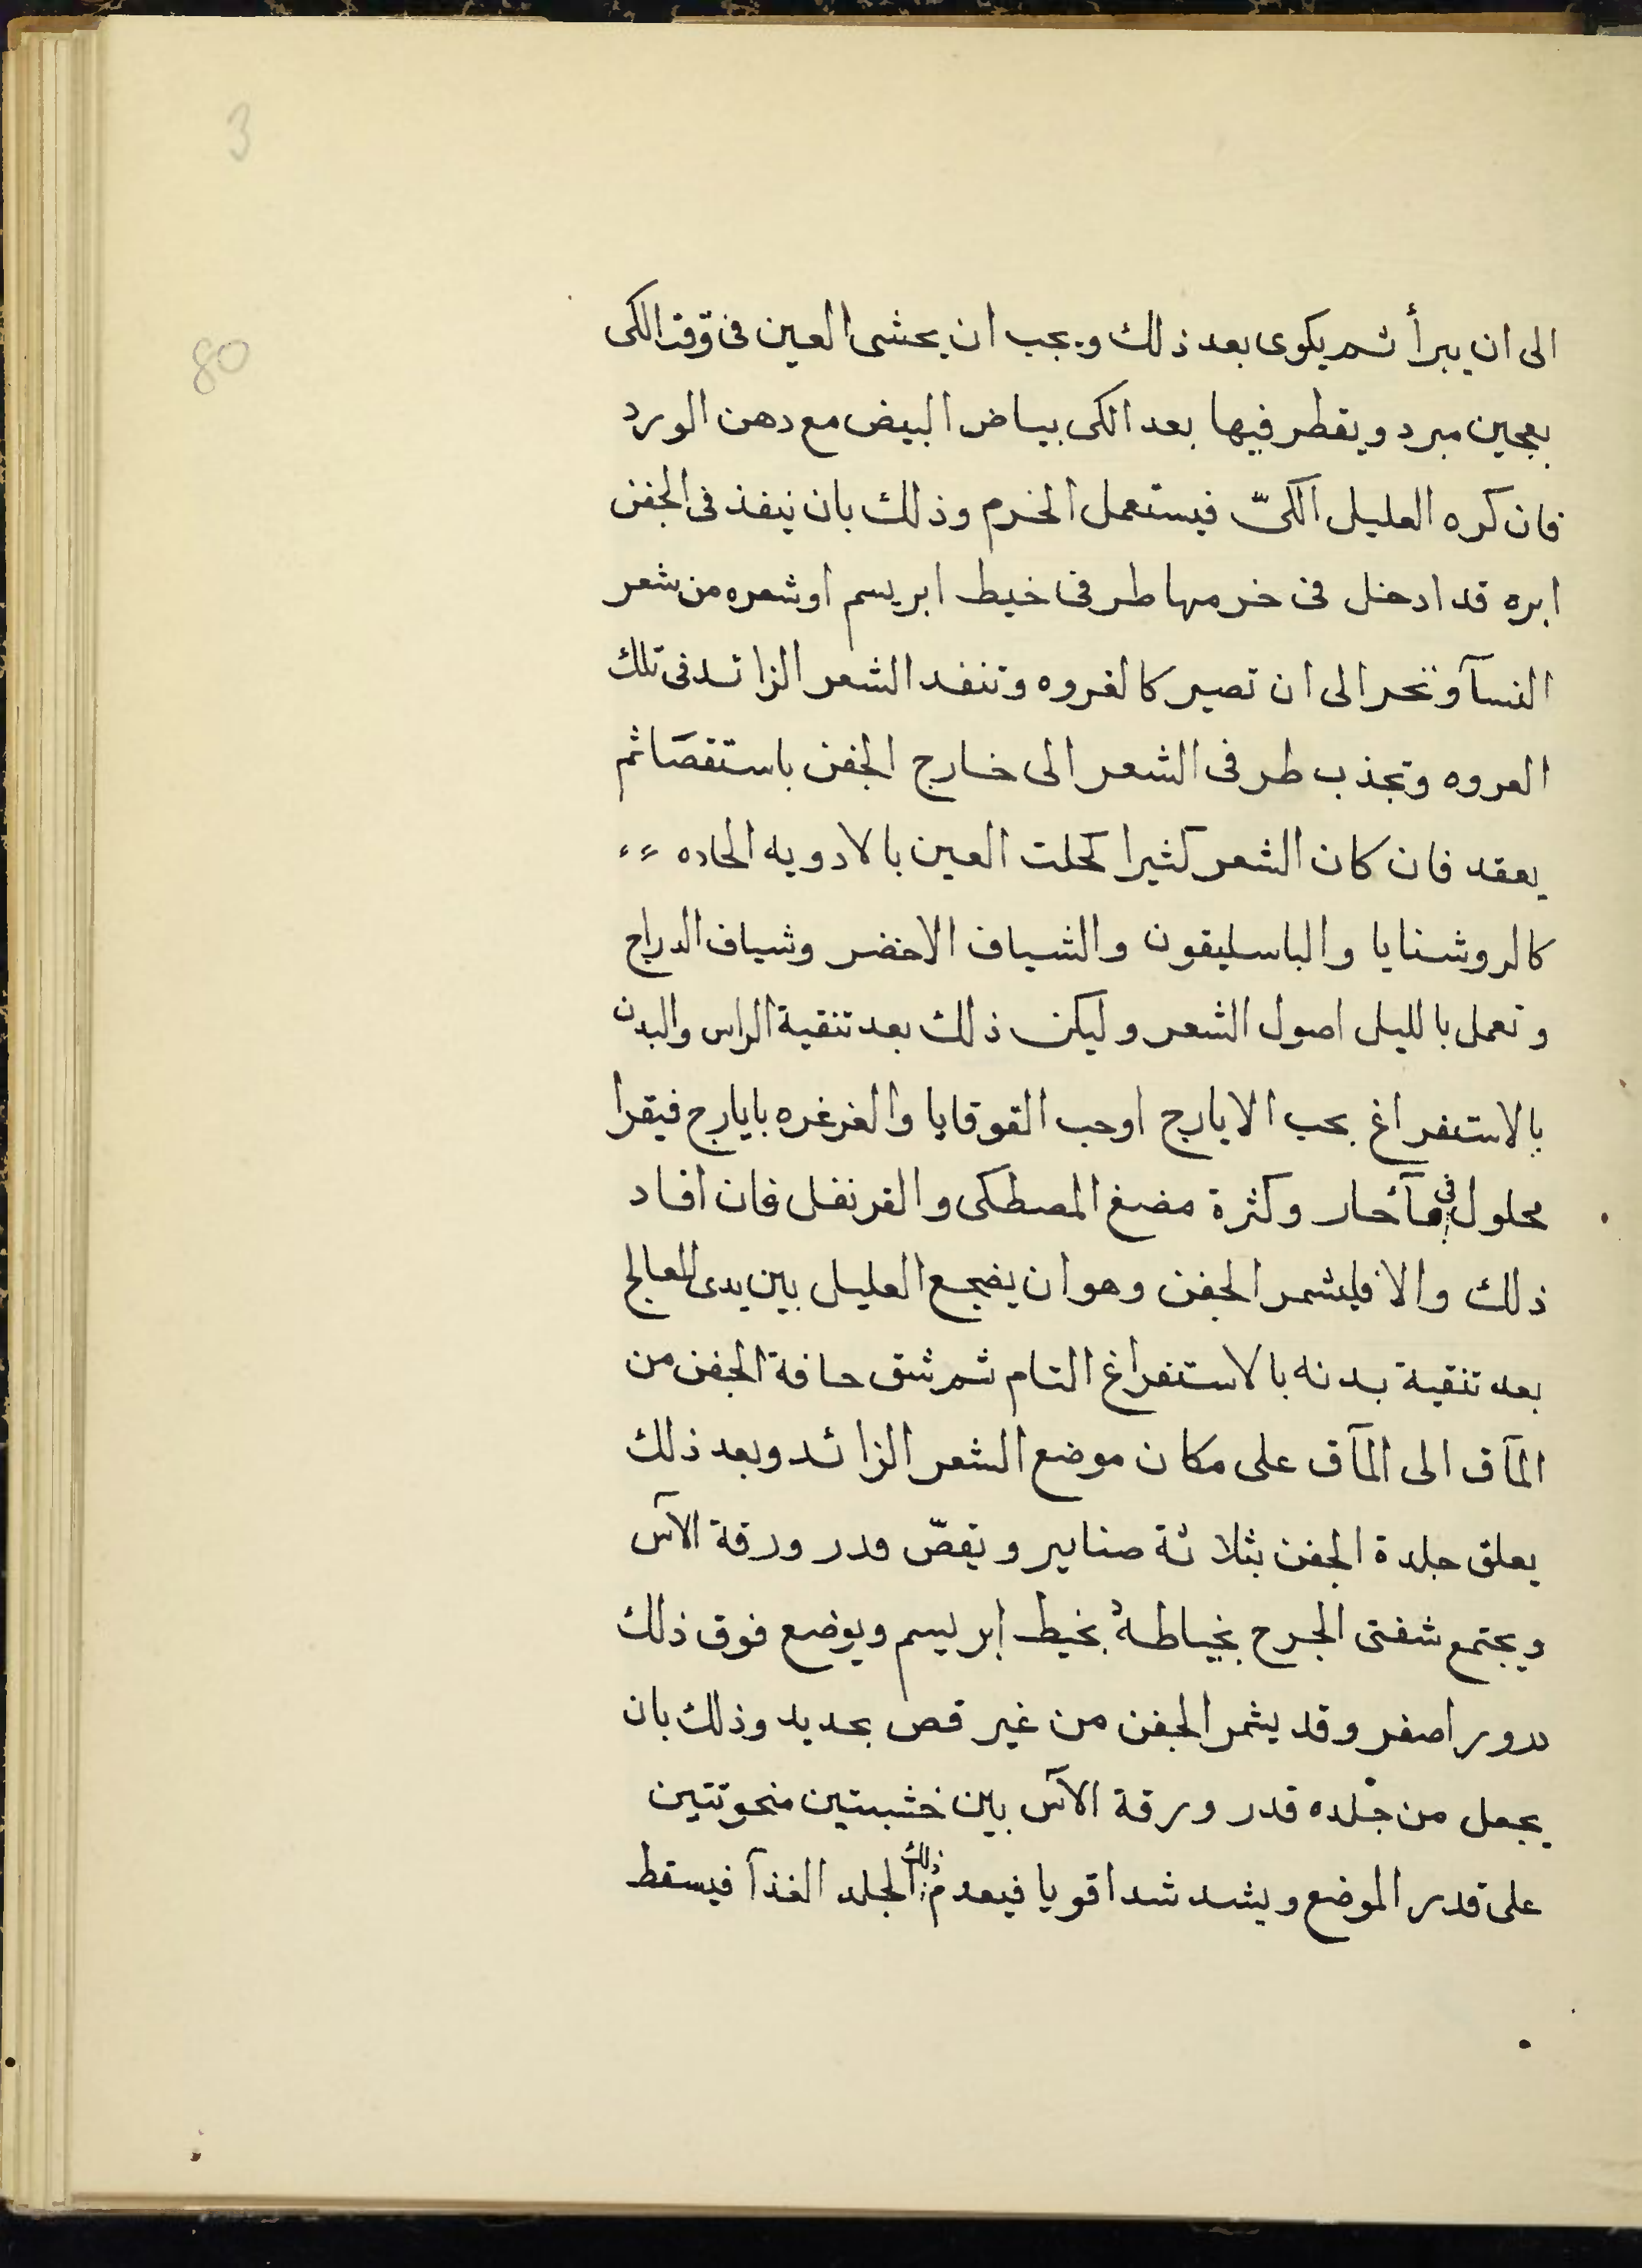 3
80
الى ان يبرأ ثم يكوى بعد ذلك ويجب ان يحشى العين فى وقت الكى
بعجين مبرد ويقطر فيها بعد الكى بياض البيض مع دهن الورد
فان كره العليل الكىّ فيستعمل الخرم وذلك بان ينفذ فى الجفن
ابره قد ادخل فى خرمها طرفى خيط ابريسم او شعره من شعر
النسآ وتجر الى ان تصير كالغروه وتنفد الشعر الزائد فى تلك
العروه وتجذب طرفى الشعر الى خارج الجفن باستقصَا ثم
يعقد فان كان الشعر كثيرا كحلت العين بالادويه الحاده
كالروشنايا والباسليقون والشياف الاخضر وشياف الدراج
وتعمل بالليل اصول الشعر وليكن ذلك بعد تنقية الراس والبدن
بالاستفراغ بحب الايارج او حب القوقايا والغرغره بايارج فيقرا
محلول فى مآ حار وكثرة مضغ المصطكى والقرنفل فان افاد
ذلك والا فليشمر الجفن وهو ان يضجع العليل بين يدى المعالج
بعد تنقية بدنه بالاستفراغ التام ثم شق حافة الجفن من
المآق الى المآق على مكان موضع الشعر الزائد وبعد ذلك
يعلق جلدة الجفن بثلاثة صنانير ويقصّ قدر ورقة الآس
ويجتمع شفتى الجرح بخياطة بخيط ابريسم ويوضع فوق ذلك
درور اصفر وقد يشمر الجفن من غير قص بحديد وذلك بان
يجعل من جلده قدر ورقة الآس بين خشبتين منحوتتين
على قدر الموضع ويشد شدا قويا فيعدم ذلك الجلد الغذآ فيسقط